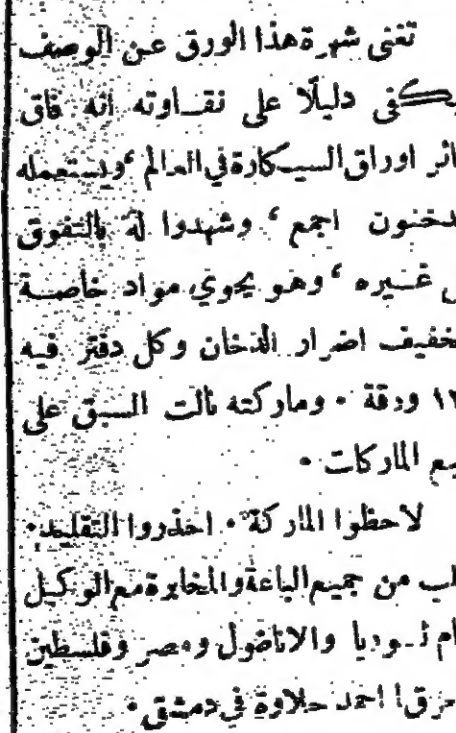 تغنى شهرة هذا الورق عن الوصف
يكفى دليلًا على نقاوته انه فاق
ائر اوراق السيكارة في العالم، ويستعمله
دخنون اجمع، وشهدوا له بالتفوق
ى غيره، وهو يحوي مواد خاصة
خفيف اضرار الدخان وكل دفتر فيه
١٢ ورقة. وماركته نالت السبق على
يع الماركات.
لاحظوا الماركة. احذروا التقليد.
لب من جميع الباعة والمخابرة مع الوكيل
ام لسوريا والاناضول ومصر وفلسطين
احمد حلاوة في دمشق.